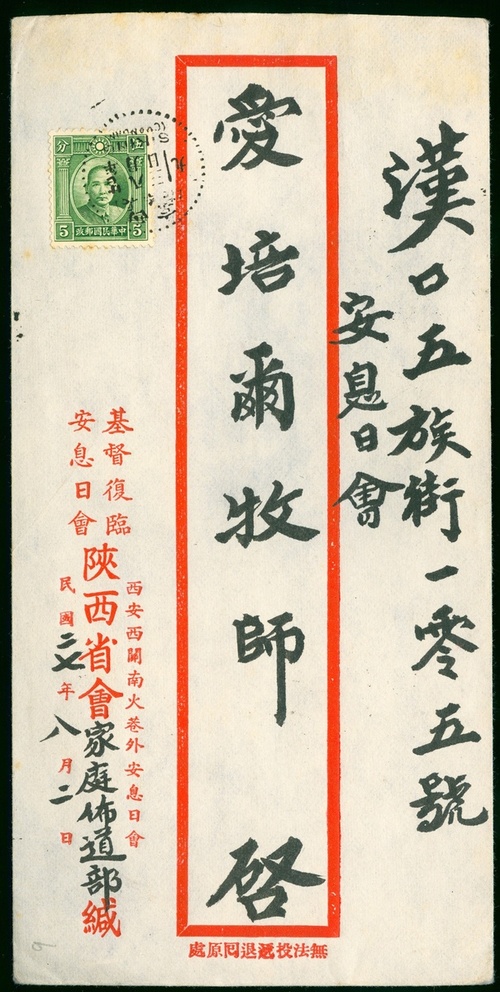 漢口五族街一零五號
安息日會
愛培爾牧師 啓
無法投遞退囘原處
西安西關南火巷外安息日會
基督復臨
安息日會
陝西省會家庭佈道部緘
民國二七年八月二日
分 伍
5 5
中華民國郵政